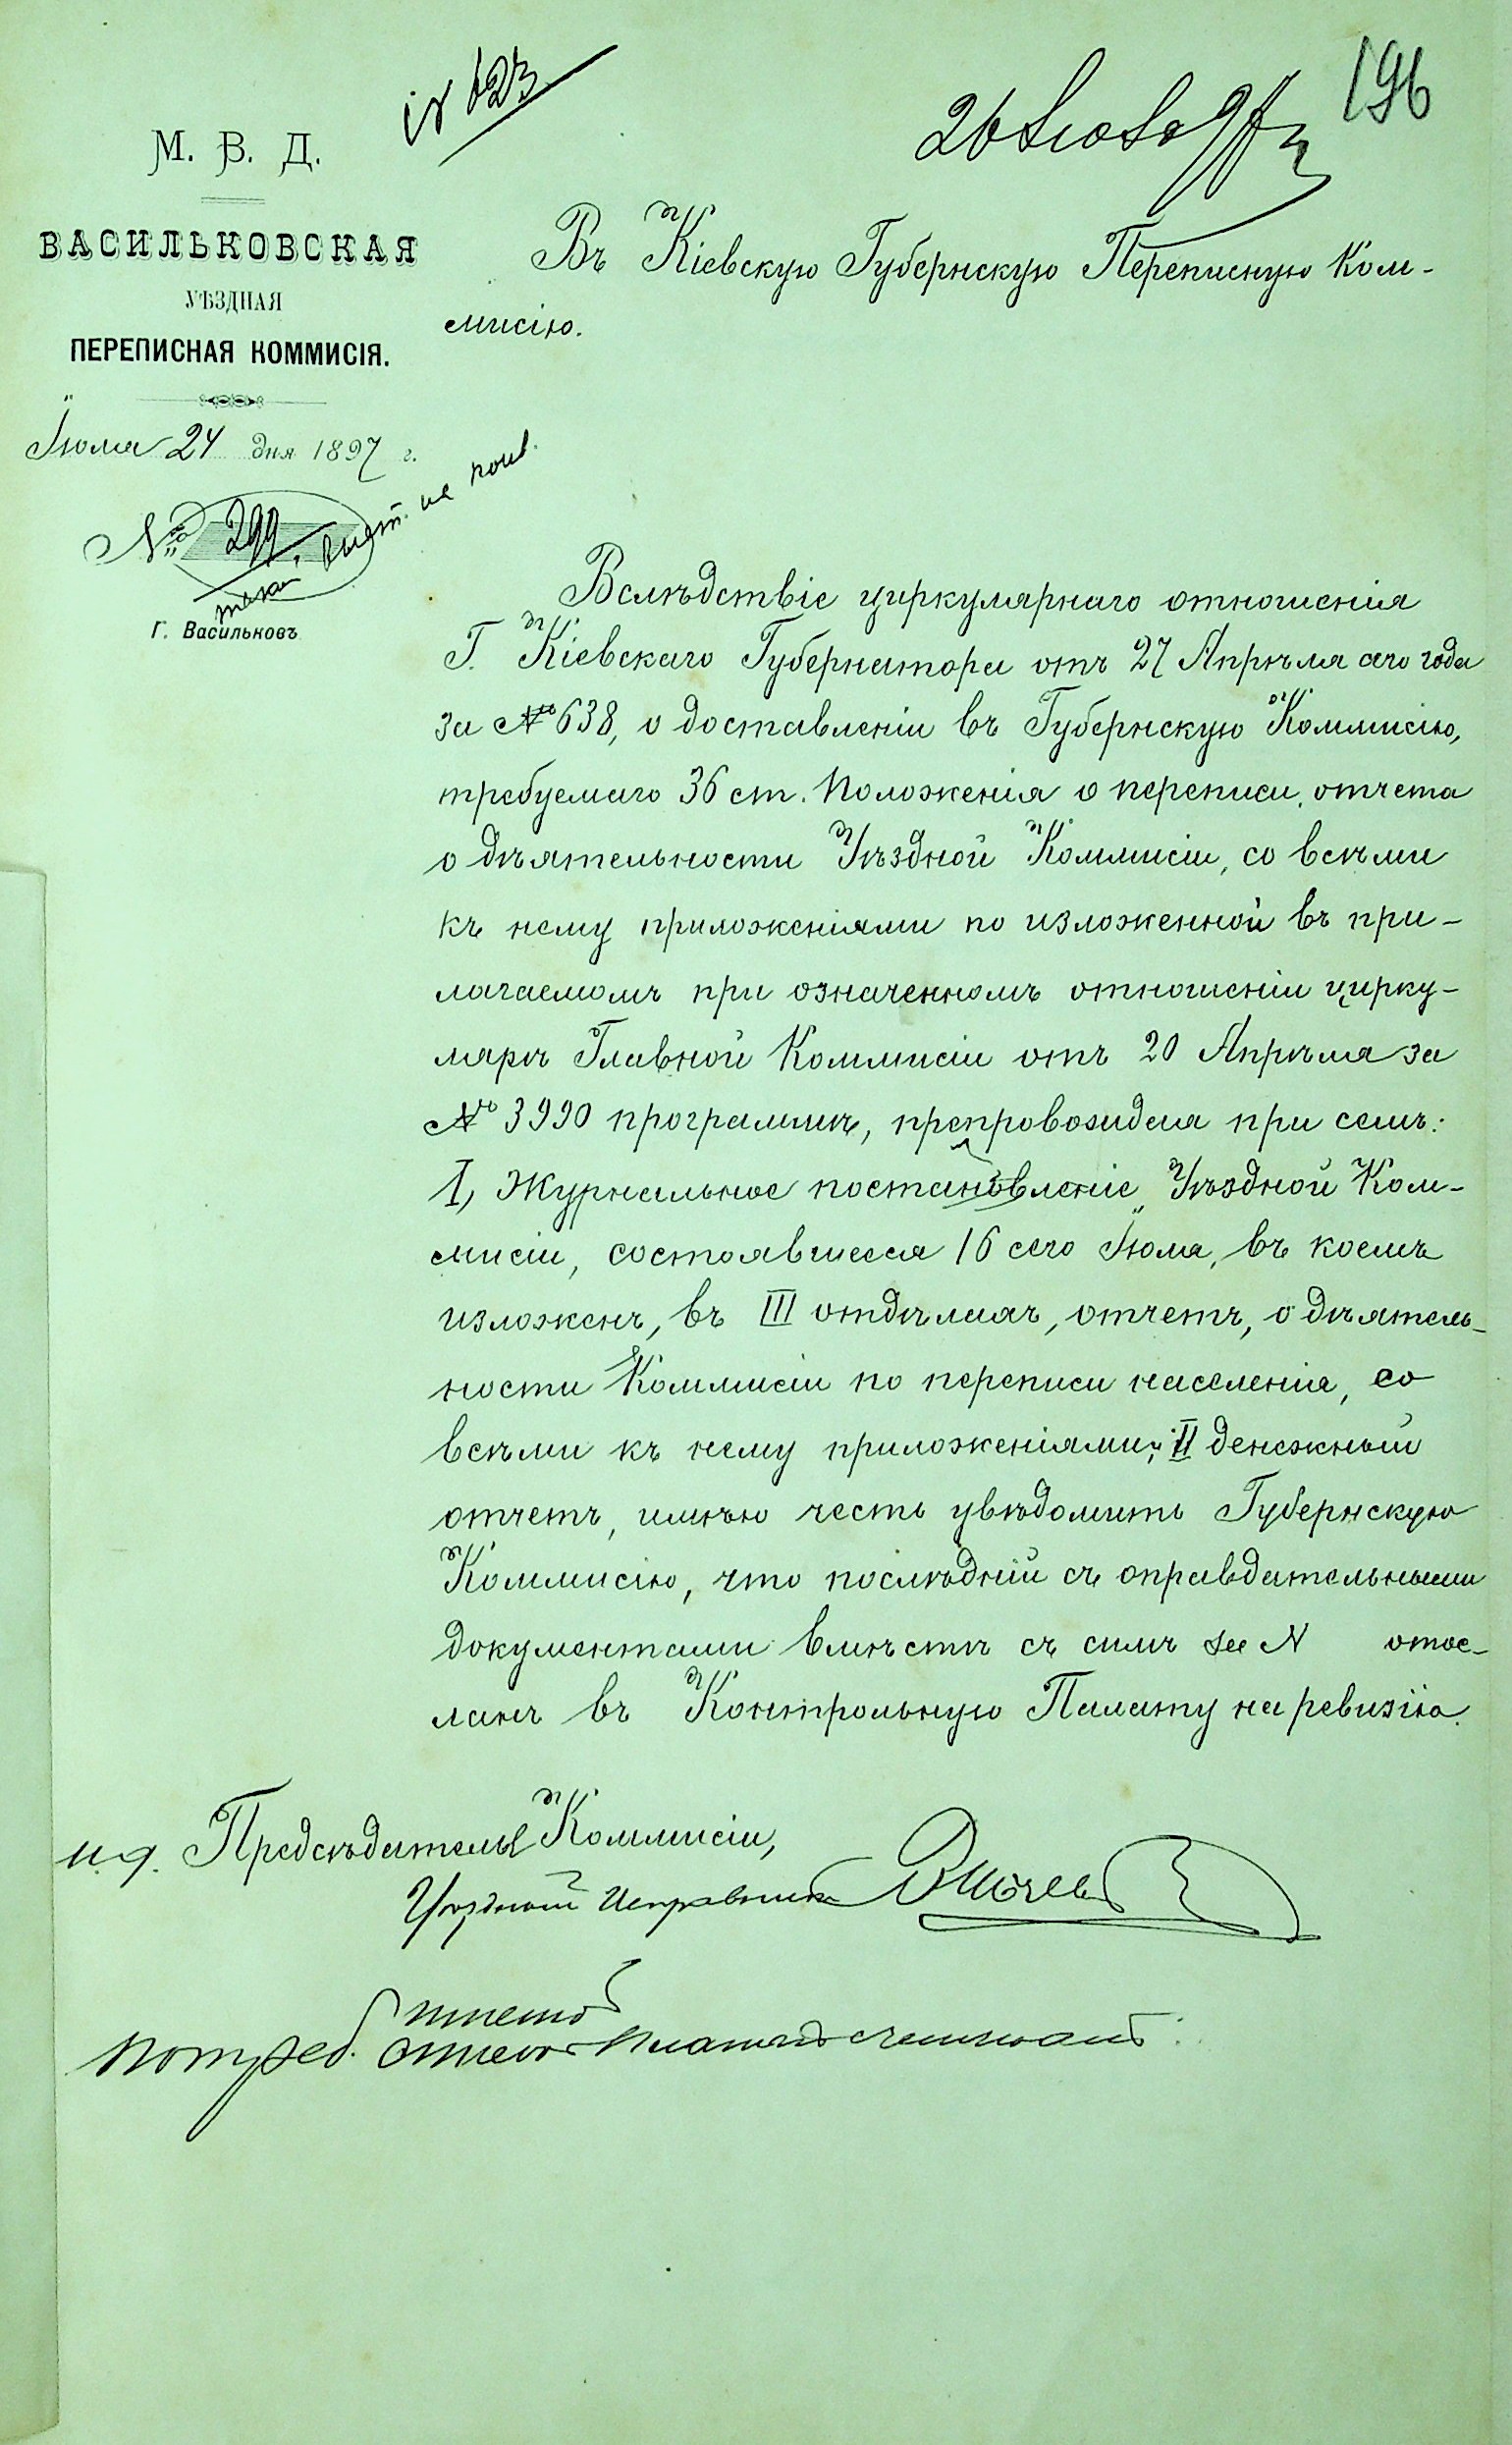 196
№ 623
26 Іюля 97 г
М. В. Д.
ВАСИЛЬКОВСКАЯ
УѢЗДНАЯ
ПЕРЕПИСНАЯ КОММИСІЯ.
Іюля 24 дня 1897 г.
№ 299.
Г. Васильковъ
Въ Кіевскую Губернскую Переписную Ком-
мисію.
Вслѣдствіе циркулярнаго отношенія
Г. Кіевскаго Губернатора отъ 27 Апрѣля сего года
за № 638, о доставленіи въ Губернскую Коммисію,
требуемаго 36 ст. Положенія о переписи, отчета
о дѣятельности Уѣздной Коммисіи, со всѣми
къ нему приложеніями по изложенной въ при-
лагаемомъ при означенномъ отношеніи цирку-
лярѣ Главной Коммисіи отъ 20 Апрѣля за
№ 3990 программѣ, препровождая при семъ:
I, Журнальное постановленіе Уѣздной Ком-
мисіи, состоявшееся 16 сего Іюля, въ коемъ
изложенъ, въ III отдѣлахъ, отчетъ, о дѣятель-
ности Коммисіи по переписи населенія, со
всѣми къ нему приложеніями, и II денежный
отчетъ, имѣю честь увѣдомить Губернскую
Коммисію, что послѣдній съ оправдательными
документами вмѣстѣ съ симъ за № отос-
ланъ въ Контрольную Палату на ревизію.
И.д. Предсѣдателя Коммисіи,
Уѣздный Исправникъ